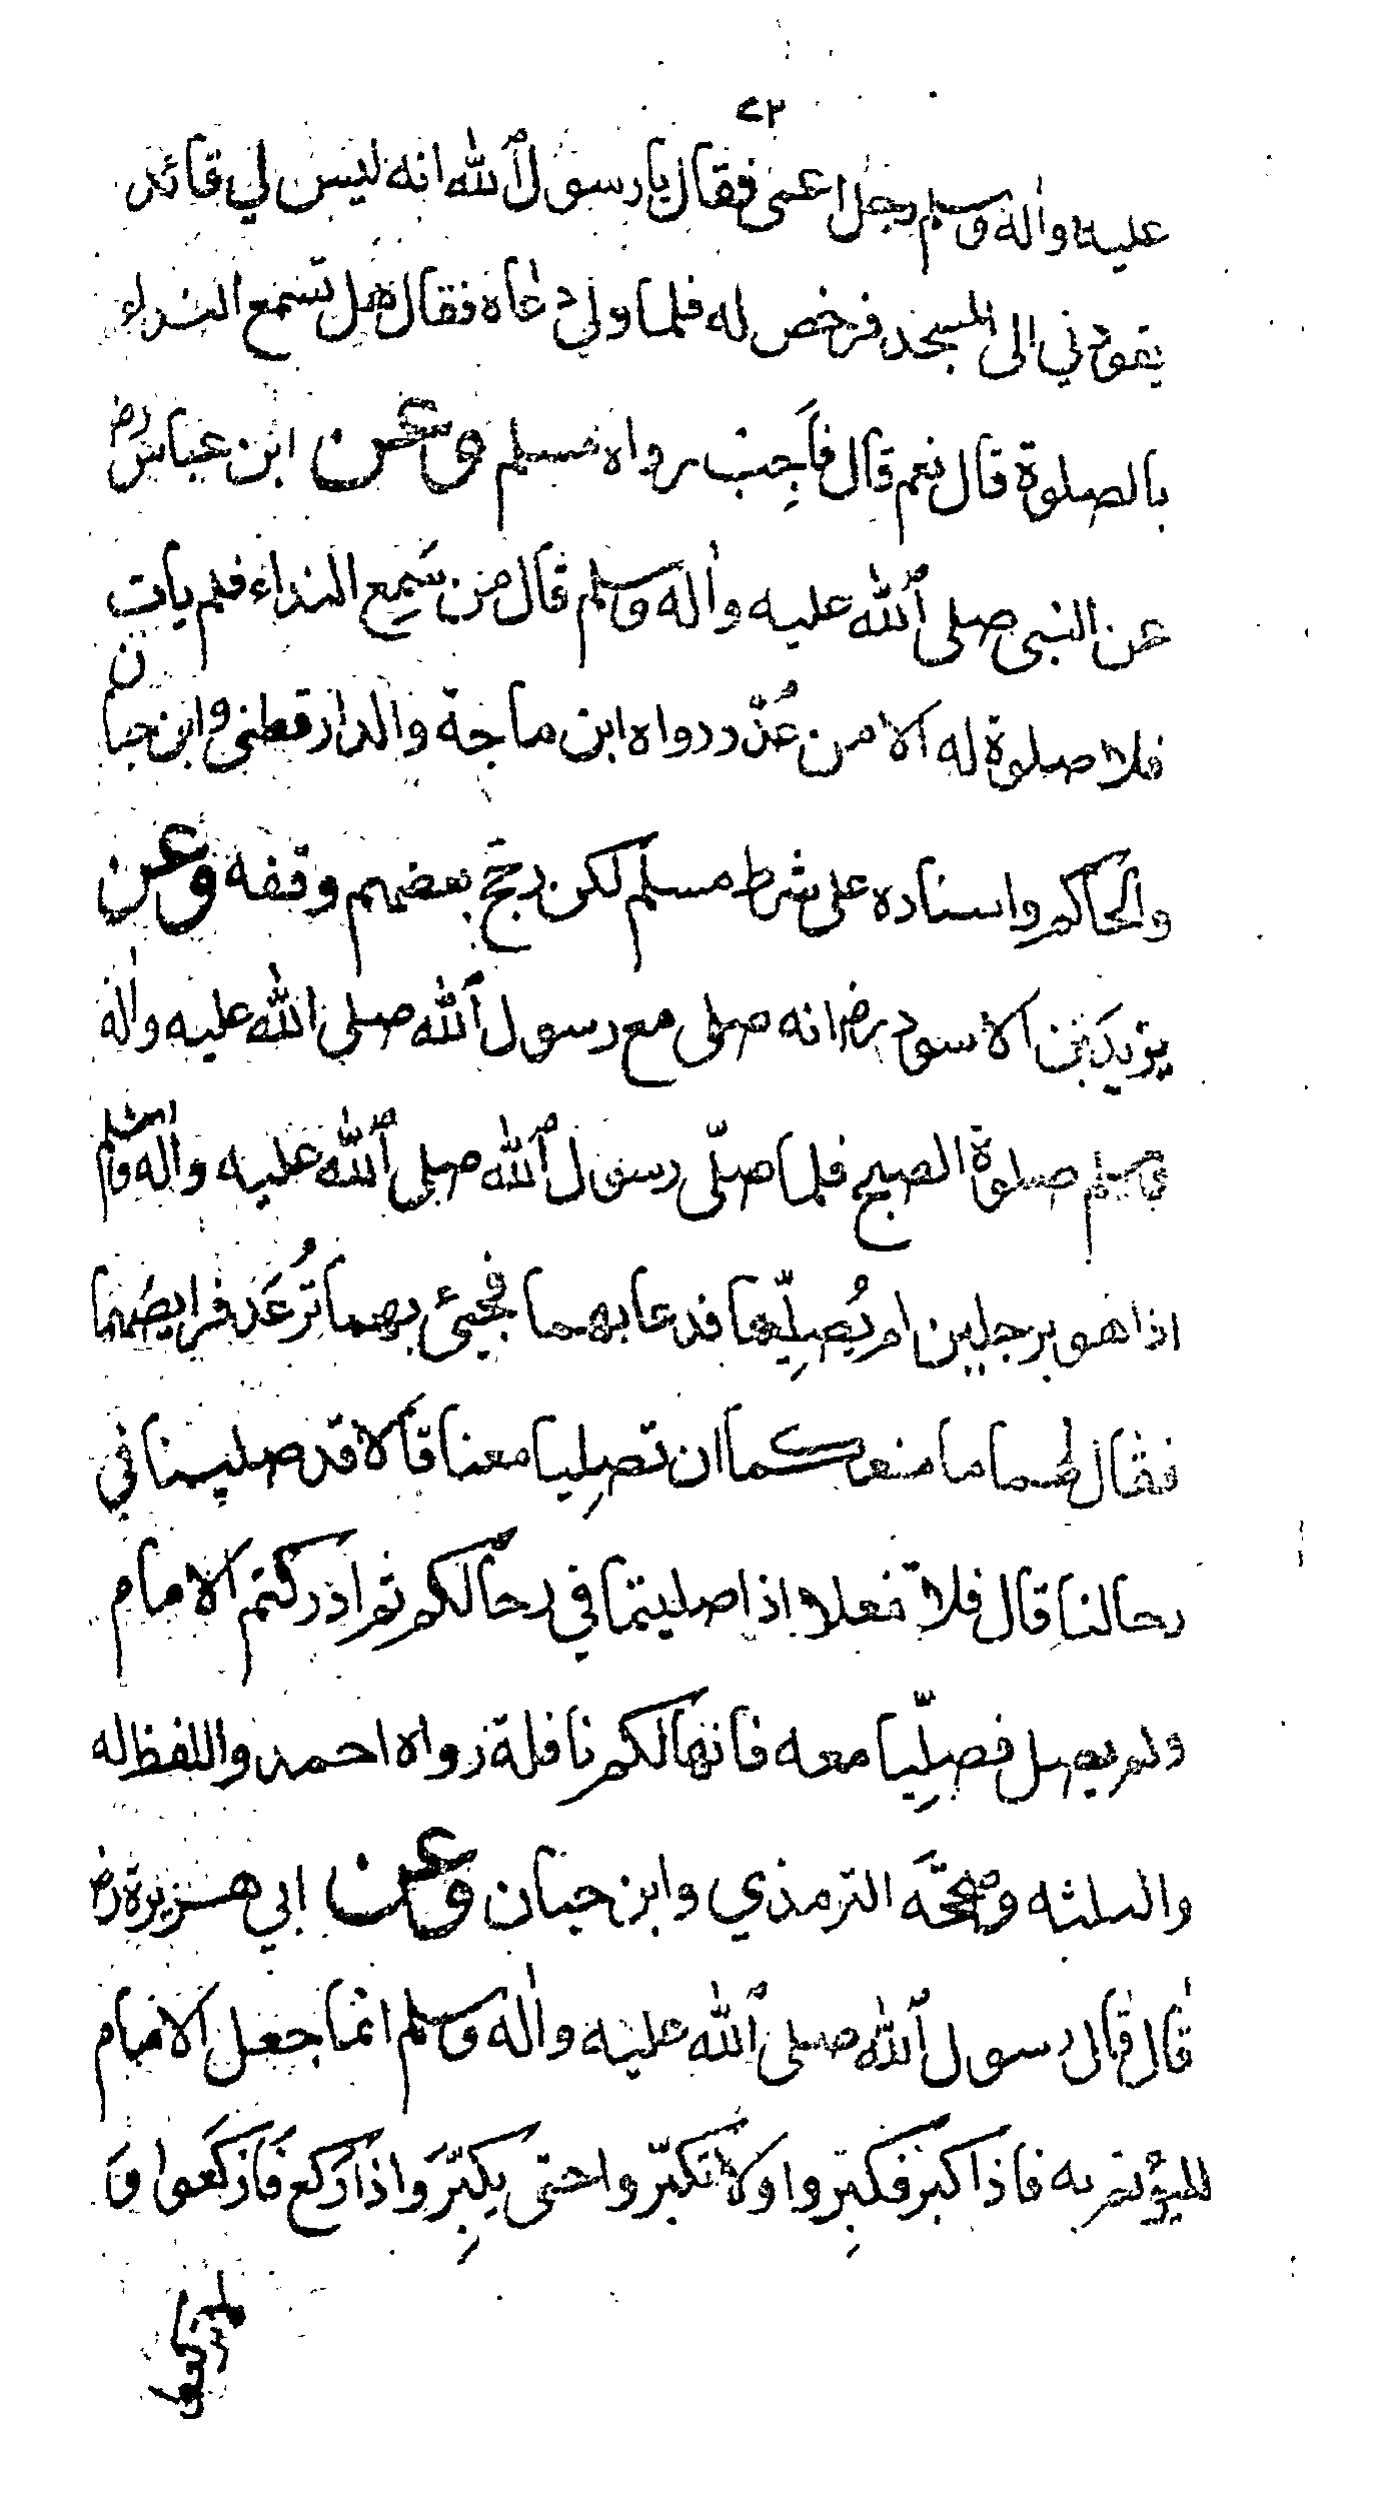 ٧٣
عليه واٰله وسلم رجل اعمى فقال يا رسول الله انه ليس لي قائد
يقودني الى المسجد فرخص له فلما ولي دعاه فقال هل تسمع النداء
بالصلوة قال نعم قال فاَجِب رواه مسلم وعن ابن عباس رض
عن النبي صلى الله عليه واٰله وسلم قال من سَمِع النداء فلم يات
فلا صلوة له الا من عُذر رواه ابن ماجة والدارقطني وابن حبان
والحاكم واسناده على شرط مسلم لكن رجّح بعضهم وقفه وعن
يزيد بن الاسود رض انه صلى مع رسول الله صلى الله عليه واٰله
وسلم صلوة الصبح فلما صلّى رسول الله صلى الله عليه واٰله وسلم
اذا هو برجلين لم يُصلِّيا فدعا بهما فجيئ بهما تُرعَد فرايصُهما
فقال لهما ما منعكما ان تصلِيا معنا قالا قد صلينا في
رحالنا قال فلا تفعلا اذا صليتما في رحالكم ثم ادركتم الامام
ولم يصل فصلِّيا معه فانها لكم نافلة رواه احمد واللفظ له
والثلثه وصححَّه الترمذي وابن حبان وعن ابي هريرة رض
قال قال رسول الله صلى الله عليه واٰله وسلم انما جعل الامام
ليؤتم به فاذا كبر فكبِروا ولا تكبّروا حتى يكبِّر واذا ركع فاركَعوا وَ